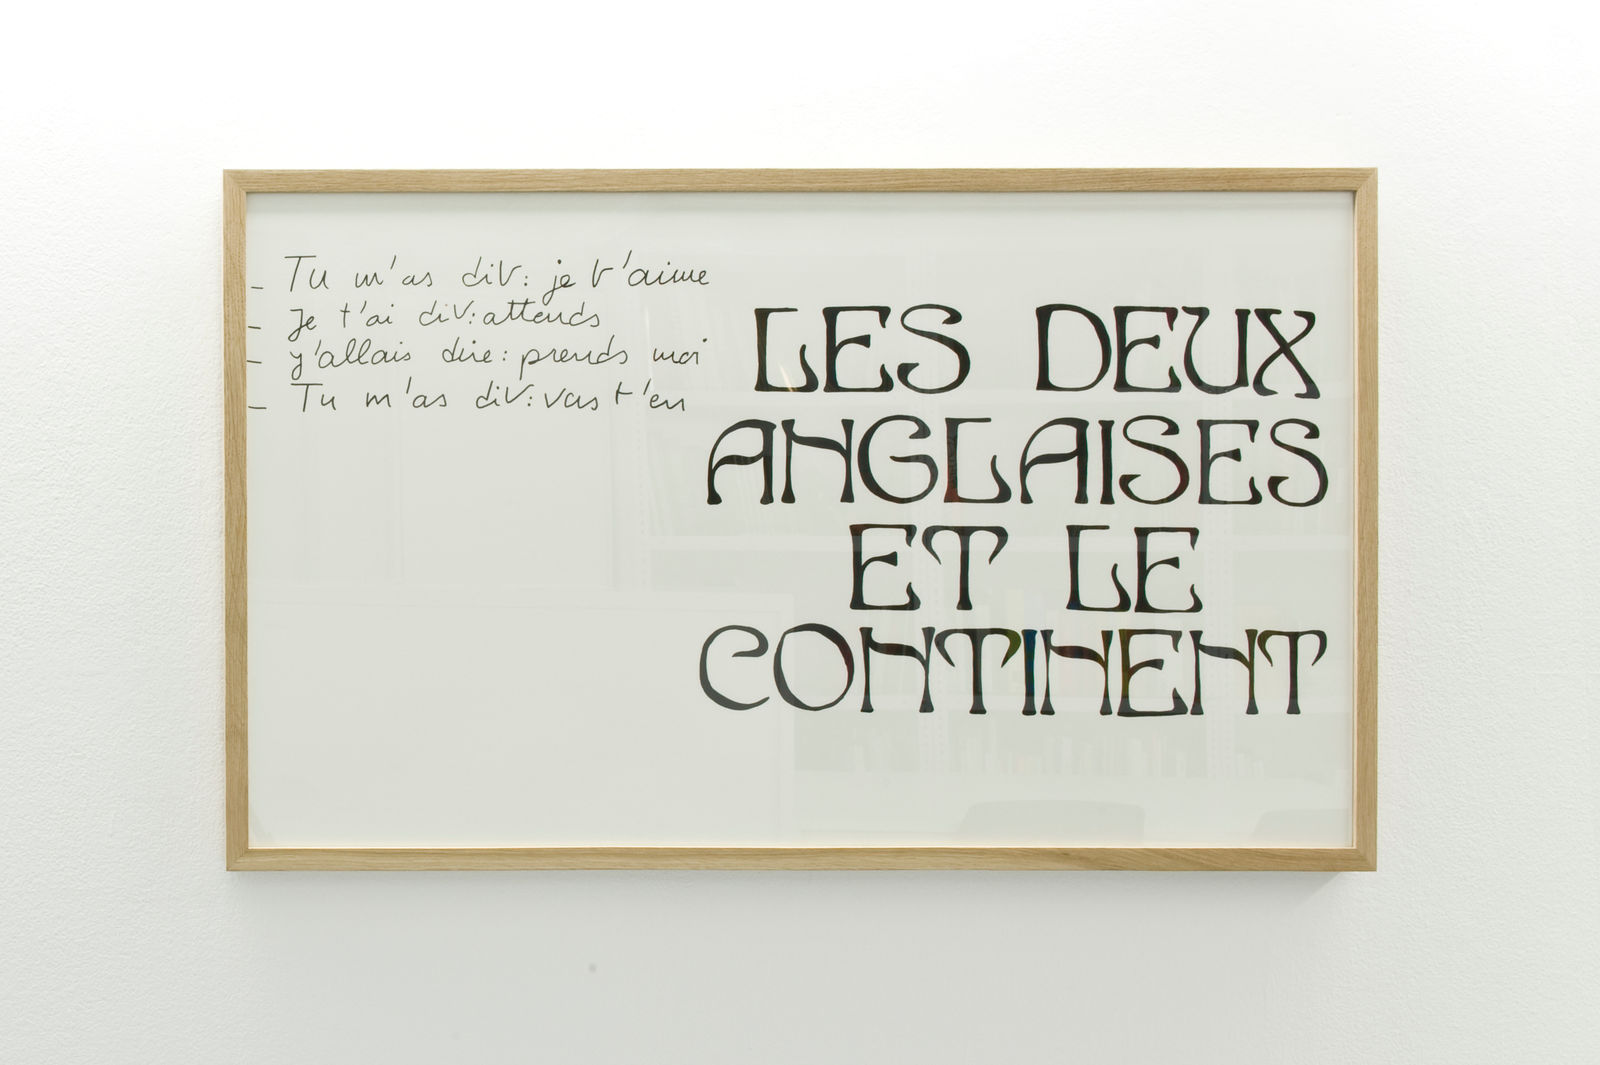 _ Tu m'as dit: je t'aime
_ Je t'ai dit: attends
_ j'allais dire: prends moi
_ Tu m'as dit: vas t'en
LES DEUX
ANGLAISES
ET LE
CONTINENT